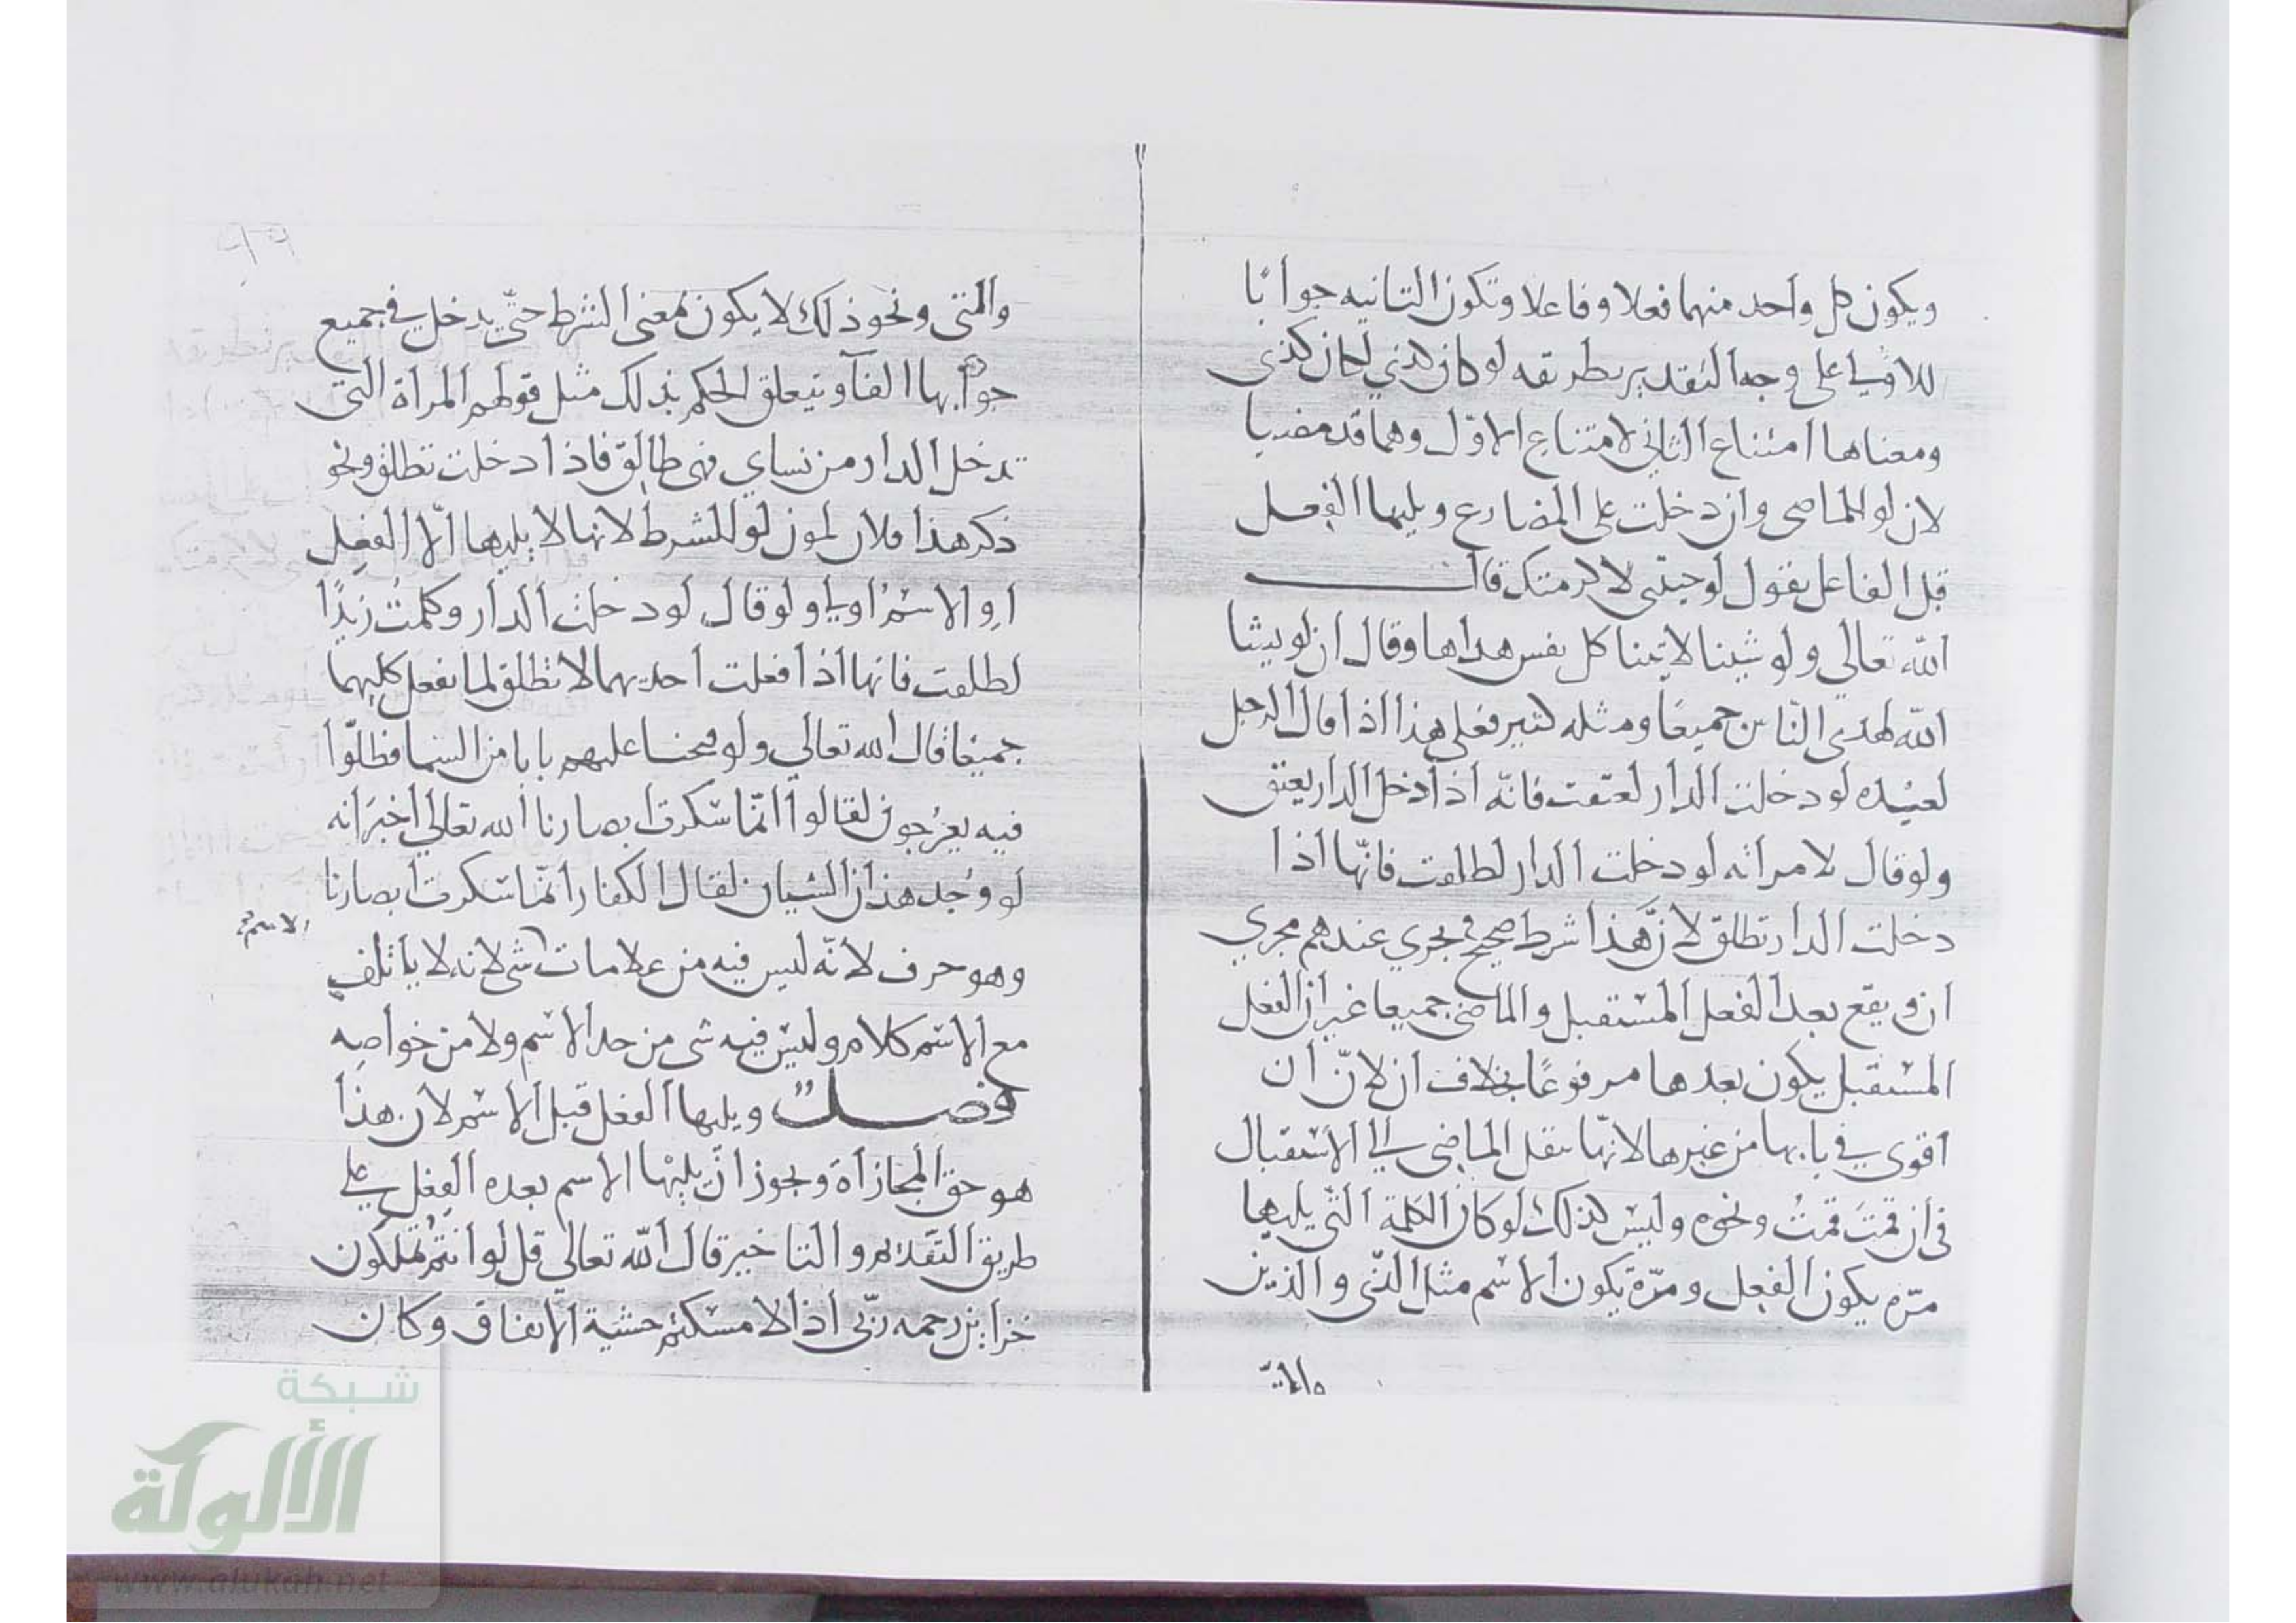 ويكون كل واحد منهما فعلا وفاعلا وتكون الثانيه جوابًا
للاولي على وجه التقدير بطريقه لو كان كذي لكان كذي
ومعناها امتناع الثاني لامتناع الاوّل وهما قد مضيا
لان لو للماضي وان دخلت على المضارع ويليها الفِعل
قبل الفاعل يقول لو جيتنى لاكرمتك قال
الله تعالي ولو شينا لاتينا كل نفس هداها وقال ان لو يشا
الله لهدى النّاس جميعًا ومثله كثير فعلي هذا اذا قال الرجل
لعبْده لو دخلت الدار لعتقت فانّه اذا دخل الدار يعتق
ولو قال لامراته لو دخلت الدار لطلقت فانّها اذا
دخلت الدار تطلق لانّ هذا شرط صحيح ويجري عندهم مجري
ان ويقع بعد الفعل المستقبل والماضي جميعا غير ان الفعل
المسْتقبل يكون بعدها مرفوعًا بخلاف ان لانّ ان
اقوي في بابها من غيرها لانّها تنقل الماضي الي الاسْتقبال
في ان قمتَ قمتُ ونحوه وليس كذلك لو كان الكلمة التّي يليها
مرّه يكون الفعل ومرّة يكون الاسْم مثل الذّي والذين
والتّي
والمتى ونحو ذلك لا يكون بمعنى الشرط حتّي يدخل في جميع
جوابها الفآ ويتعلق الحكم بذلك مثل قولهم المرأة التى
تدخل الدار من نساي فهي طالق فاذا دخلت تطلق ونحو
ذكر هذا فلان لمون لو للشرط لانها لا يليها الّا الفعِل
او الاسْمُ اولي ولو قال لو دخلت الدار وكلمتُ زيدًا
لطلقت فانها اذا فعلت احديهما لا تطلق لما تفعل كليهما
جميْعًا قال الله تعالي ولو فتحنا عليهم بابا من السّما فظلّوا
فيه يعرُجون لقالوا انّما سكرت ابصارنا الله تعالي اخبَر انه
لو وُجد هذان الشيان لقال الكفار انّما سكرت ابصارنا
الاسم
وهو حرف لانّه ليس فيه من علامات شي لانه لا ياتلف
مع الاسْم كلام وليْس فيه شي من حد الاسْم ولا من خواصِه
فصل ويليها الفعل قبل الاسْم لان هذا
هو حق المجازاة ويجوز انْ يليْها الاسم بعده الفِعْل علي
طريق التّقديم والتاخير قال الله تعالي قل لو انتُم تملكون
خزاين رحمه ربّي اذا لامسكتم خشية الانفاق وكان
شبكة
الألوكة
www.alukah.net